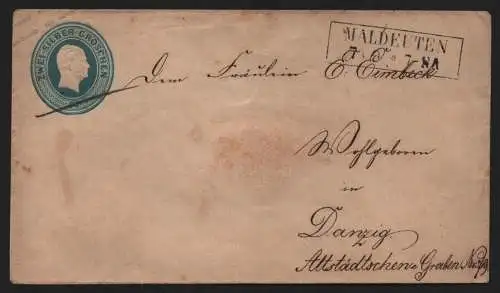 ZWEI SILBER GROSCHEN
MALDEUTEN
7 8 7 8A
Dem Fräulein E. Eimbeck
Wohlgeboren
in
Danzig
Altstädtschen Graben No.